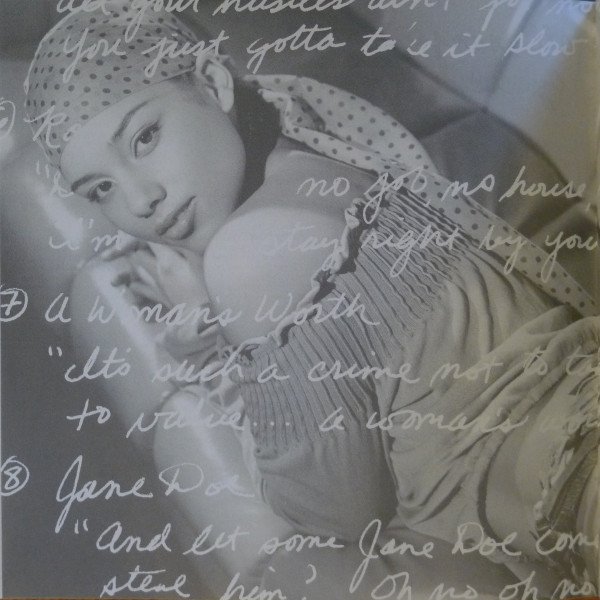 all your hustles ain't for no
You just gotta take it slow
⑥ R
"
no job, no house,
i'm stay right by you
⑦ A Womans Worth
"It's such a crime not to
to value... a woman's
⑧ Jane Doe
"And let some Jane Doe come
steal him? Oh no oh no